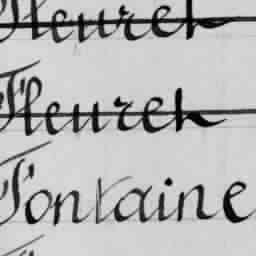 Fleuret
Fleuret
Fontaine